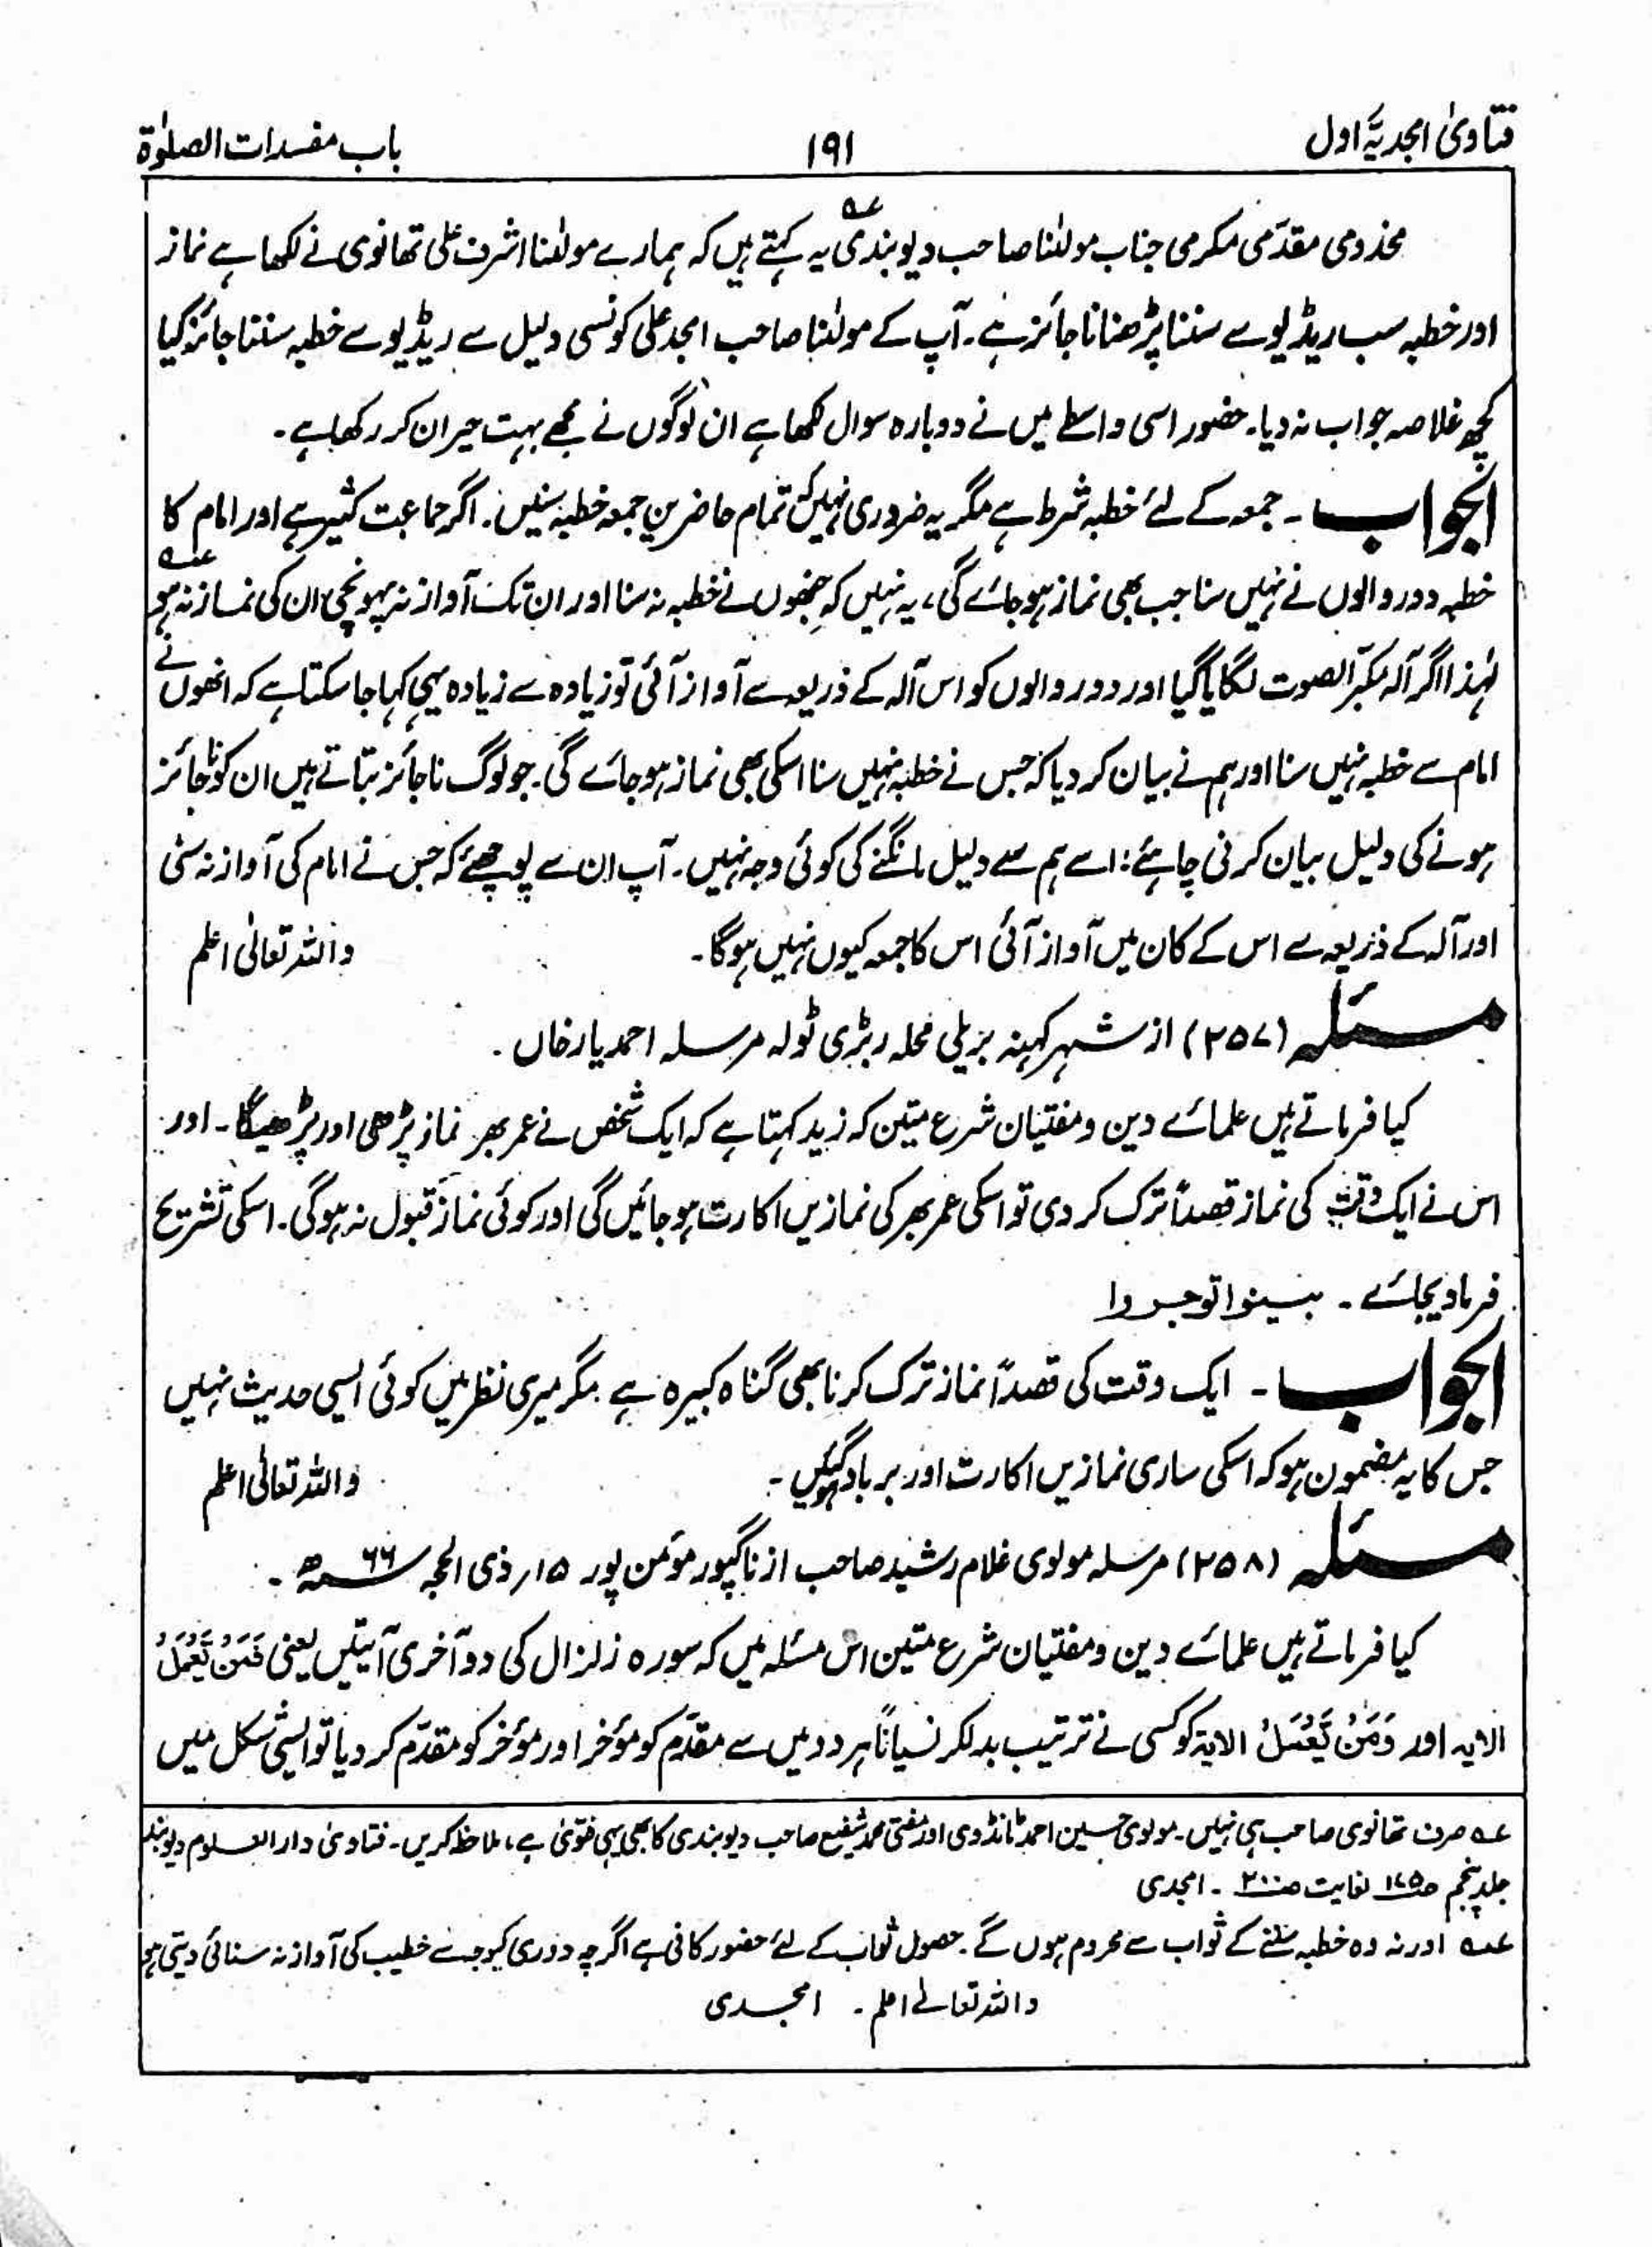 فتاویٰ امجدیہ اول ۱۹۱ باب مفسدات الصلوٰۃ
مخذومی مقدّمی مکرمی جناب مولٰنا صاحب دیوبندی عہ یہ کہتے ہیں کہ ہمارے مولٰنا اشرف علی تھانوی نے لکھا ہے نماز
اور خطبہ سب ریڈیو سے سننا پڑھنا ناجائز ہے۔ آپ کے مولٰنا صاحب امجد علی کونسی دلیل سے ریڈیو سے خطبہ سننا جائز کیا
کچھ خلاصہ جواب نہ دیا۔ حضور اسی واسطے میں نے دوبارہ سوال لکھا ہے ان لوگوں نے مجھے بہت حیران کر رکھا ہے۔
الجواب ۔ جمعہ کے لئے خطبہ شرط ہے مگر یہ ضروری نہیں کہ تمام حاضرین جمعہ خطبہ سنیں۔ اگر جماعت کثیر ہے اور امام کا
خطبہ دور والوں نے نہیں سنا جب بھی نماز ہو جائے گی، یہ نہیں کہ جنھوں نے خطبہ نہ سنا اور ان تک آواز نہ پہونچی ان کی نماز نہ ہو عہ
لہٰذا اگر آلہ مکبّر الصوت لگایا گیا اور دور والوں کو اس آلہ کے ذریعہ سے آواز آئی تو زیادہ سے زیادہ یہی کہا جا سکتا ہے کہ انھوں نے
امام سے خطبہ نہیں سنا اور ہم نے بیان کر دیا کہ جس نے خطبہ نہیں سنا اسکی بھی نماز ہو جائے گی۔ جو لوگ ناجائز بتاتے ہیں ان کو ناجائز
ہونے کی دلیل بیان کرنی چاہئے: اسے ہم سے دلیل مانگنے کی کوئی وجہ نہیں۔ آپ ان سے پوچھئے کہ جس نے امام کی آواز نہ سنی
اور آلہ کے ذریعہ سے اس کے کان میں آواز آئی اس کا جمعہ کیوں نہیں ہوگا۔ واللہ تعالیٰ اعلم
مسئلہ (۲۵۷) از شہر کہنہ بریلی محلہ ربڑی ٹولہ مرسلہ احمد یار خاں ۔
کیا فرماتے ہیں علمائے دین و مفتیان شرع متین کہ زید کہتا ہے کہ ایک شخص نے عمر بھر نماز پڑھی اور پڑھیگا۔ اور
اس نے ایک وقت کی نماز قصداً ترک کر دی تو اسکی عمر بھر کی نمازیں اکارت ہو جائیں گی اور کوئی نماز قبول نہ ہوگی۔ اسکی تشریح
فرما دیجائے ۔ بینوا توجروا
الجواب ۔ ایک وقت کی قصداً نماز ترک کرنا بھی گناہ کبیرہ ہے مگر میری نظر میں کوئی ایسی حدیث نہیں
جس کا یہ مضمون ہو کہ اسکی ساری نمازیں اکارت اور برباد ہوگئیں ۔ واللہ تعالیٰ اعلم
مسئلہ (۲۵۸) مرسلہ مولوی غلام رشید صاحب از ناگپور مؤمن پور ۱۵؍ ذی الحجہ ۶۶ھ ۔
کیا فرماتے ہیں علمائے دین و مفتیان شرع متین اس مسئلہ میں کہ سورہ زلزال کی دو آخری آیتیں یعنی فَمَنْ یَّعْمَلْ
الایہ اور وَمَنْ یَّعْمَلْ الایۃ کو کسی نے ترتیب بدلکر نسیاناً ہر دو میں سے مقدّم کو مؤخر اور مؤخر کو مقدّم کر دیا تو ایسی شکل میں
عہ صرف تھانوی صاحب ہی نہیں۔ مولوی حسین احمد ٹانڈوی اور مفتی محمد شفیع صاحب دیوبندی کا بھی یہی فتویٰ ہے، ملاحظہ کریں۔ فتاویٰ دار العلوم دیوبند
جلد پنجم ص ۱۷۵ لغایت ص ۲۰۰ ۔ امجدی
عہ اور نہ وہ خطبہ سننے کے ثواب سے محروم ہوں گے۔ حصول ثواب کے لئے حضور کافی ہے اگرچہ دوری کیوجہ سے خطیب کی آواز نہ سنائی دیتی ہو
واللہ تعالےٰ اعلم ۔ امجدی